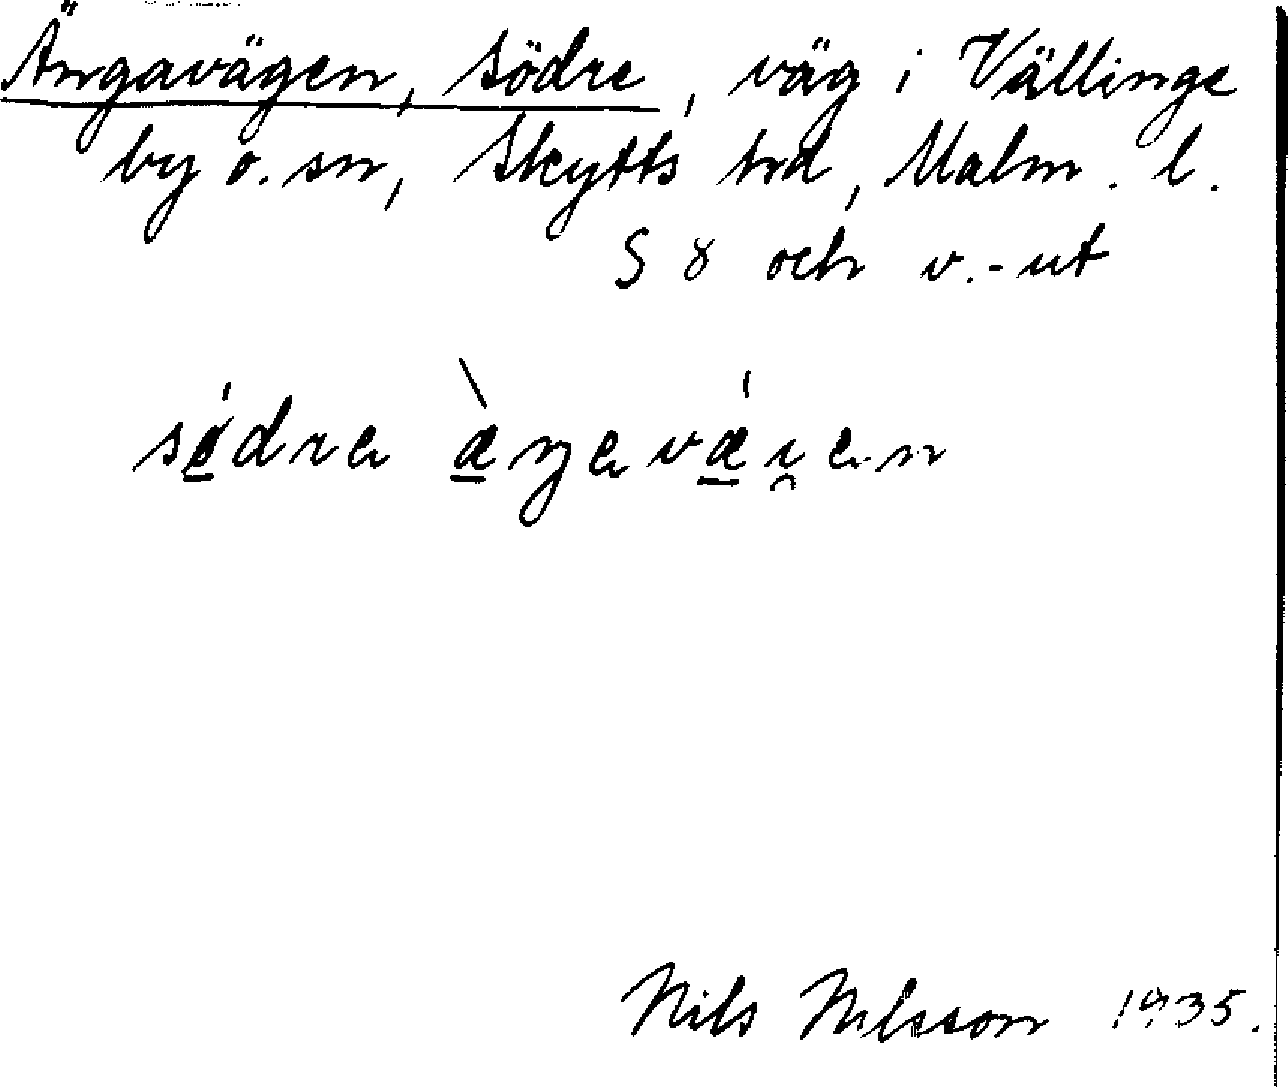 Ängavägen, södre, väg i Vällinge
by o. sn, Skytts hd, Malm. l.
S 8 och v.-ut
södre æ̀ŋavǽi̯en
Nils Nilsson 1935.